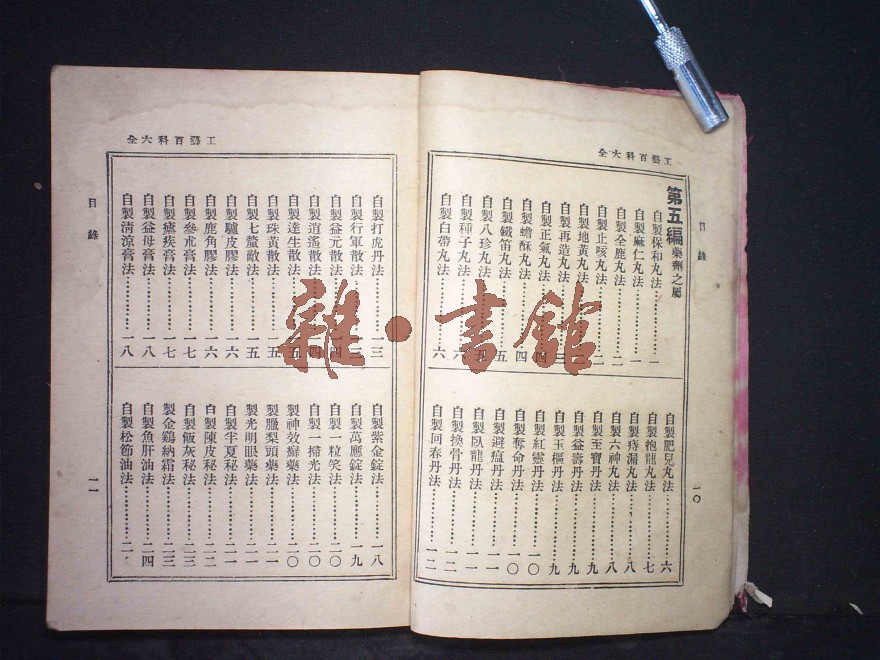 工藝百科大全
目錄
一〇
第五編 藥劑之屬
自製保和丸法…………一
自製麻仁丸法…………一
自製全鹿丸法…………二
自製止咳丸法…………二
自製地黃丸法
自製再造丸法…………三
自製正氣丸法…………四
自製蟾酥丸法…………四
自製鐵笛丸法…………五
自製八珍丸法…………五
自製種子丸法…………六
自製白帶丸法…………六
自製肥兒丸法…………六
自製抱龍丸法…………七
自製痔漏丸法…………八
自製六神丸法…………八
自製至寶丹法…………九
自製益壽丹法…………九
自製玉樞丹法…………九
自製紅靈丹法…………一〇
自製奪命丹法…………一〇
自製避瘟丹法…………一一
自製臥龍丹法…………一一
自製換骨丹法…………一二
自製回春丹法…………一二
工藝百科大全
目錄
一一
自製打虎丹法…………一三
自製行軍散法…………一三
自製益元散法…………一四
自製逍遙散法…………一四
自製達生散法…………一五
自製珠黃散法…………一五
自製七釐散法…………一五
自製驢皮膠法…………一六
自製鹿角膠法…………一六
自製叁朮膏法…………一七
自製瘧疾膏法…………一七
自製益母膏法…………一八
自製清涼膏法…………一八
自製紫金錠法…………一八
自製萬應錠法…………一九
自製一粒笑法…………二〇
自製一掃光法…………二〇
製神效癬藥法…………二〇
製臘梨頭藥法…………二一
製光明眼藥法…………二一
自製半夏秘法…………二一
自製陳皮秘法…………二二
自製飯灰秘法…………二三
製金鷄納霜法…………二三
自製魚肝油法…………二四
自製松節油法
雜·書館